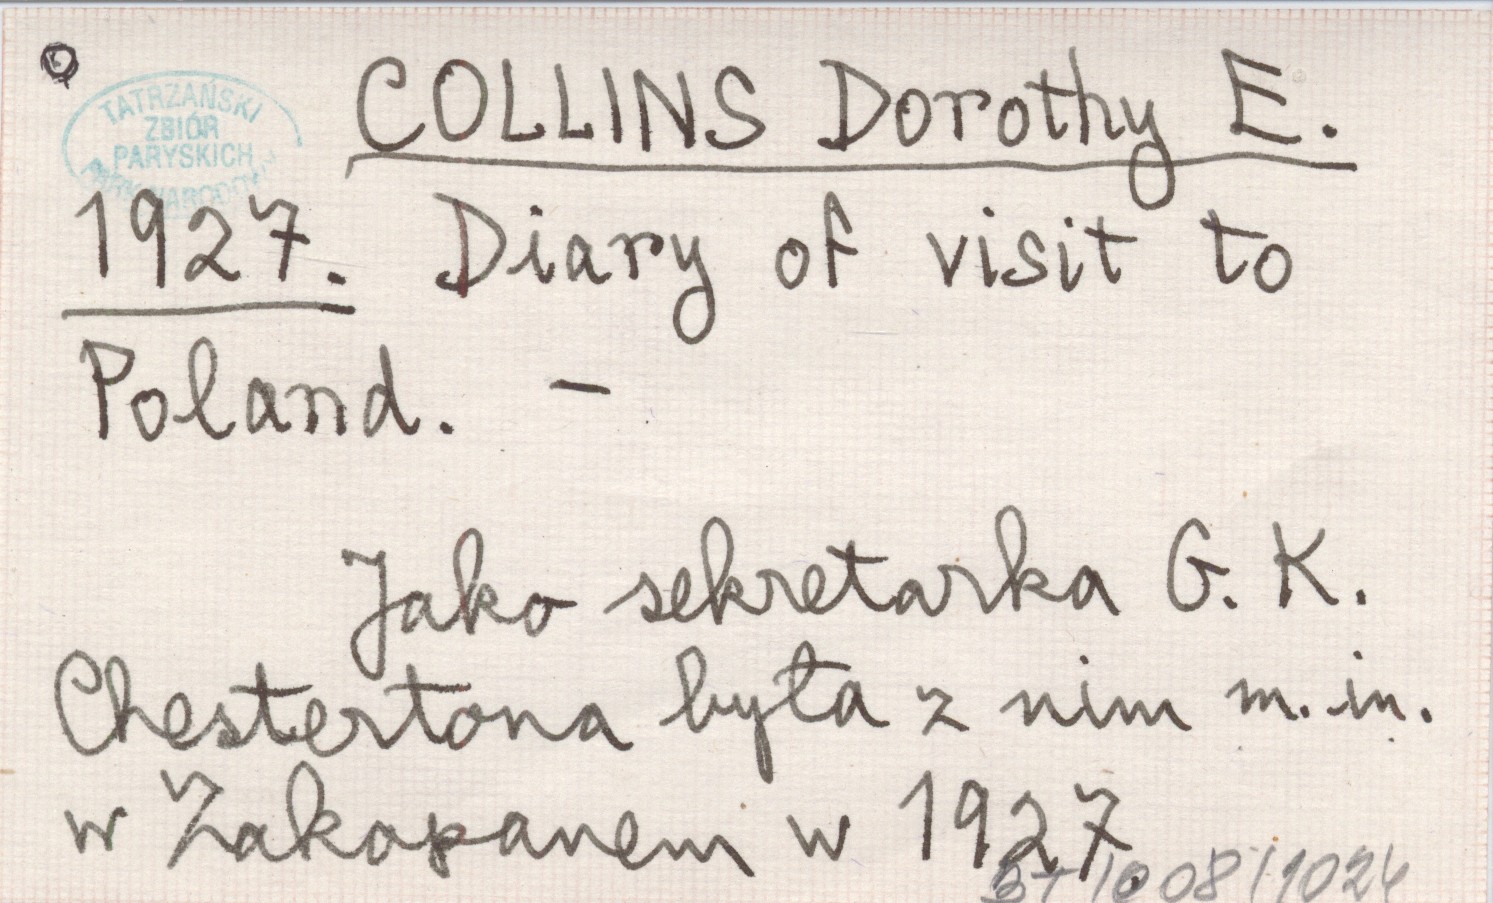 TATRZAŃSKI
ZBIÓR
PARYSKICH
PARK NARODOWY
COLLINS Dorothy E.
1927. Diary of visit to
Poland. –
Jako sekretarka G. K.
Chestertona była z nim m. in.
w Zakopanem w 1927